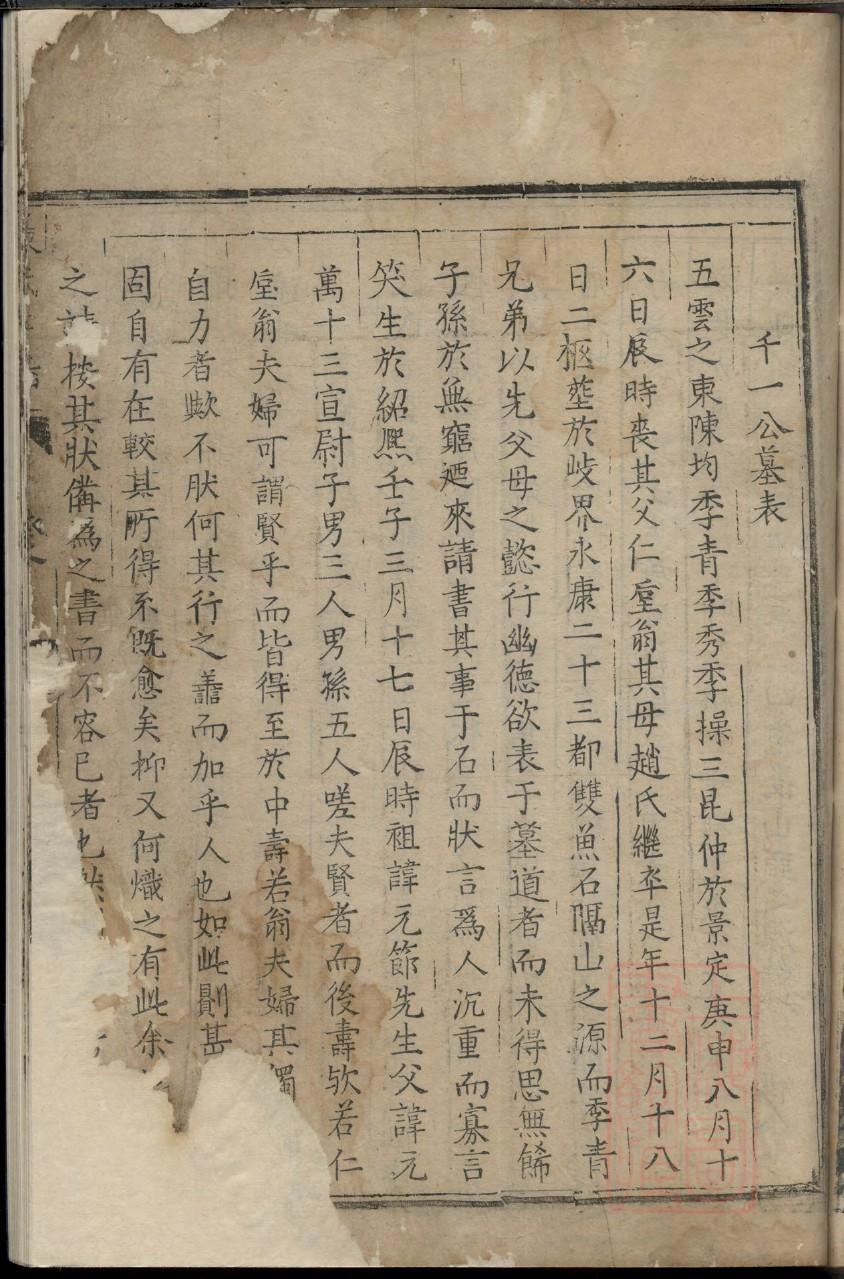 千一公墓表
五雲之東陳均季青季秀季操三昆仲於景定庚申八月十
六日辰時丧其父仁堂翁其母趙氏継卒是年十二月十八
日二柩塟於岐界永康二十三都雙魚石隔山之源而季青
兄弟以先父母之懿行幽德欲表于墓道者而未得思無餙
子孫於無窮廼來請書其事于石而狀言為人沉重而寡言
笑生於紹熈壬子三月十七日辰時祖諱元節先生父諱元
萬十三宣尉子男三人男孫五人嗟夫賢者而後壽欤若仁
堂翁夫婦可謂賢乎而皆得至於中壽若翁夫婦其獨
自力者歟不肰何其行之譱而加乎人也如此則甚
固自有在較其所得不既愈矣抑又何熾之有此余
之請按其狀俻為之書而不容已者也